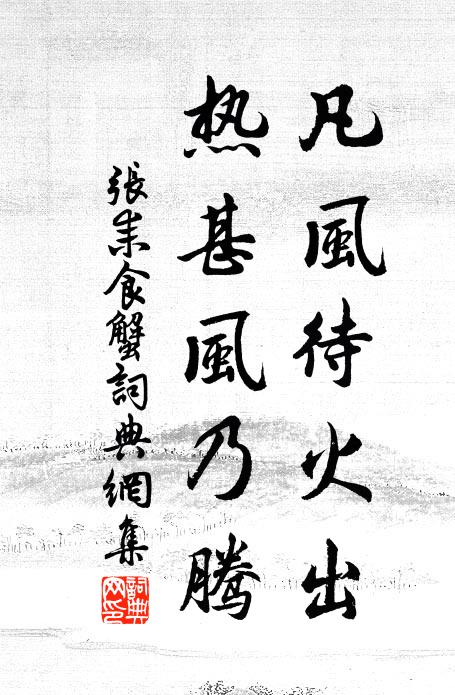 凡風待火出
热甚風乃腾
張耒食蟹詞典網集
詞典网印